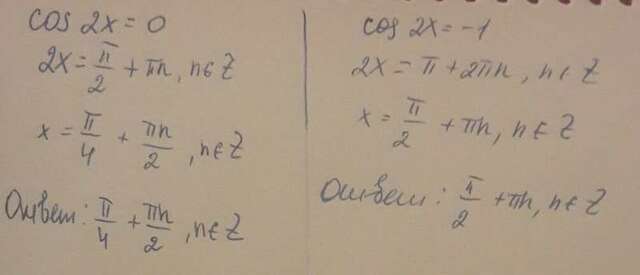 cos 2x = 0
2x = π/2 + πn, n∈Z
x = π/4 + πn/2, n∈Z
Ответ: π/4 + πn/2, n∈Z
cos 2x = -1
2x = π + 2πn, n∈Z
x = π/2 + πn, n∈Z
Ответ: π/2 + πn, n∈Z